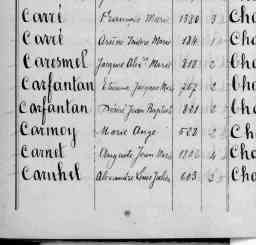 Carré François Marie 1380 3 Cha
Carré Arsène Isidore Marie 184 Cha
Caresmel Jacques Alex.dre Marie 818 2 Cha
Carfantan Etienne Jacques Marie 767 2 Cha
Carfantan Désiré Jean Baptiste 821 2 Cha
Carmoy Marie Ange 528 2 Cha
Carnet Auguste Jean Marie 4 Cha
Caruhel Alexandre Louis Jules 603 2 Cha